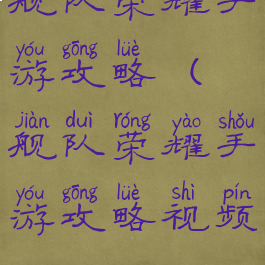 舰队荣耀手
yóu gōng lüè
游攻略（
jiàn duì róng yào shǒu
舰队荣耀手
yóu gōng lüè shì pín
游攻略视频